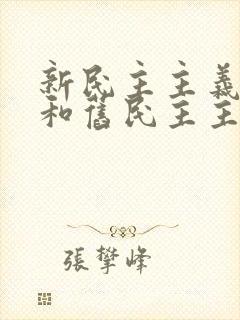 新民主主義
和舊民主主
張攀峰